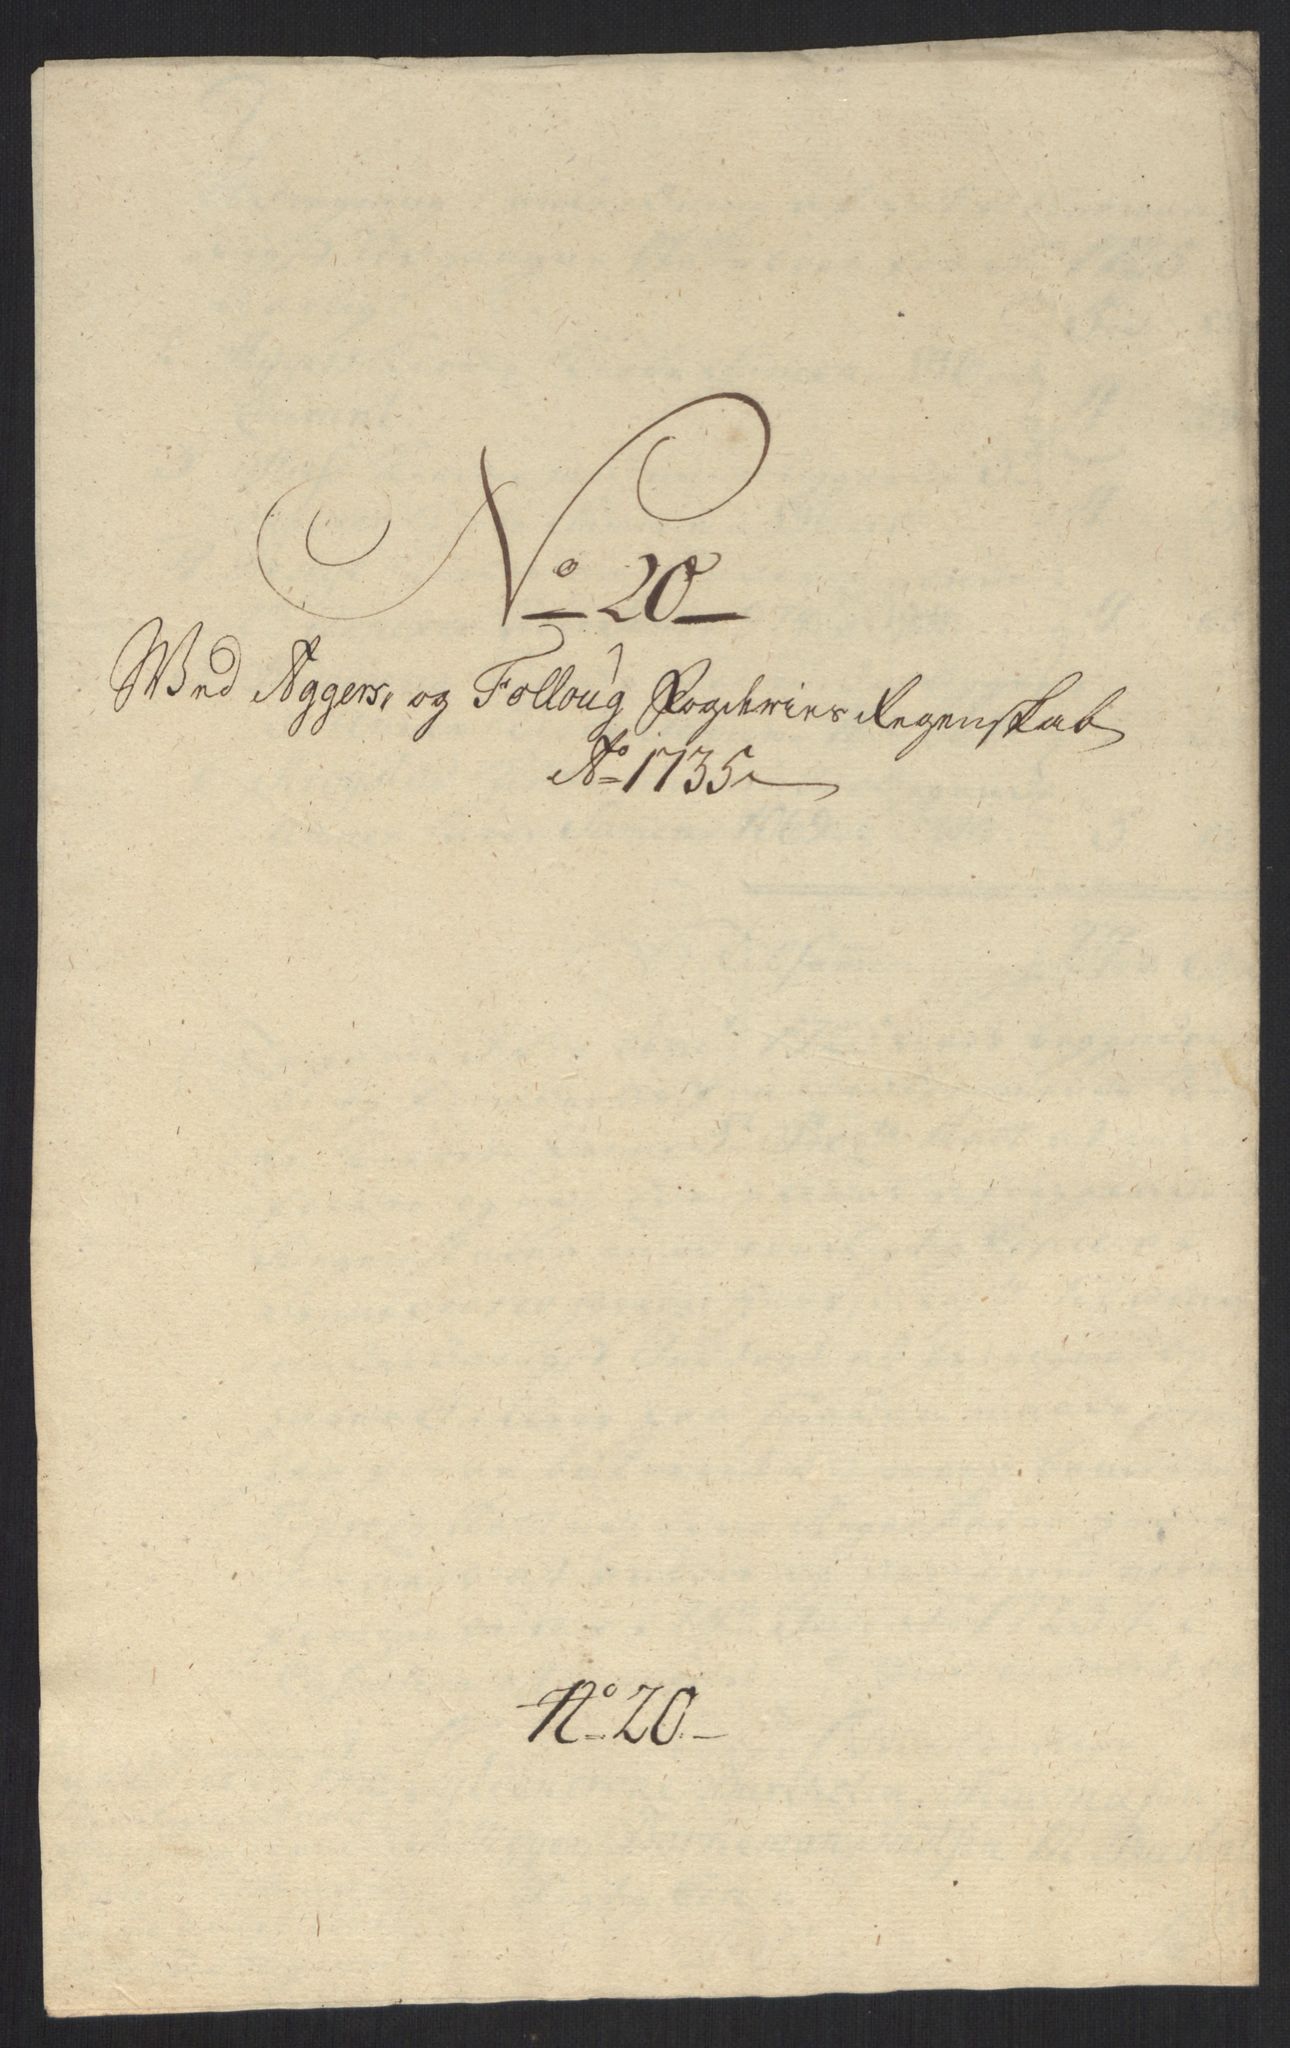 No 20
Wed Aggers, og Folloug Fogderies Regenskab
Ao 1735
No 20